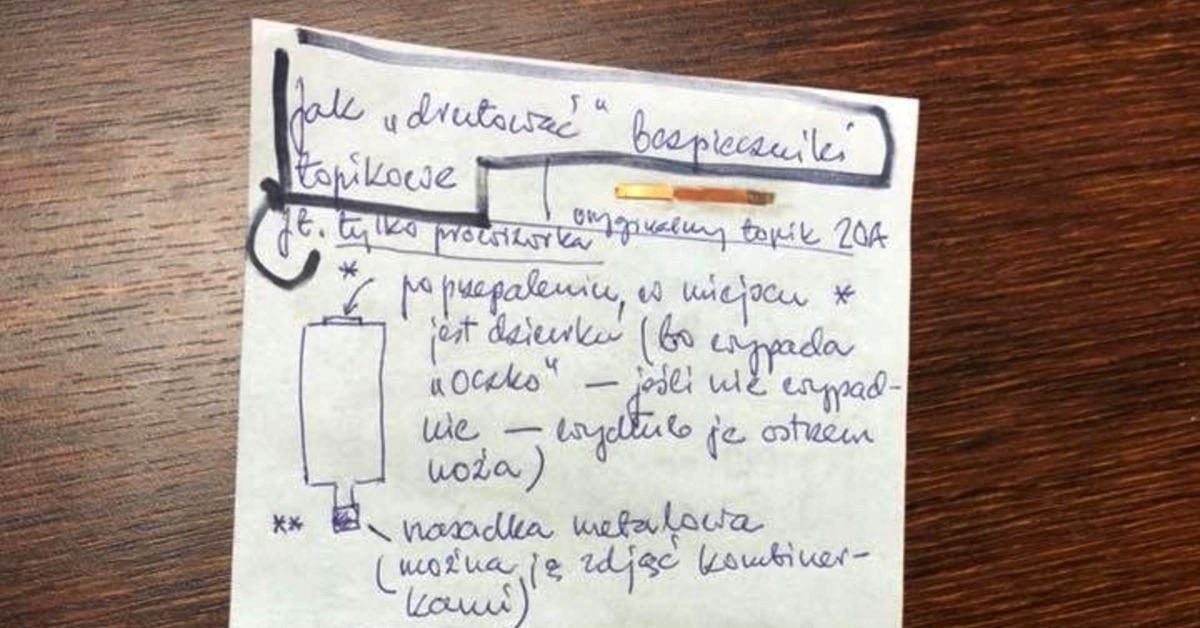 Jak „drutować" bezpieczniki
topikowe
jt. tylko prowizorka
oryginalny topik 20A
*
po przepaleniu, w miejscu *
jest dziurka (bo wypada
„oczko" — jeśli nie wypad-
nie — wydłub je ostrzem
noża)
** nasadka metalowa
(można ją zdjąć kombiner-
kami)